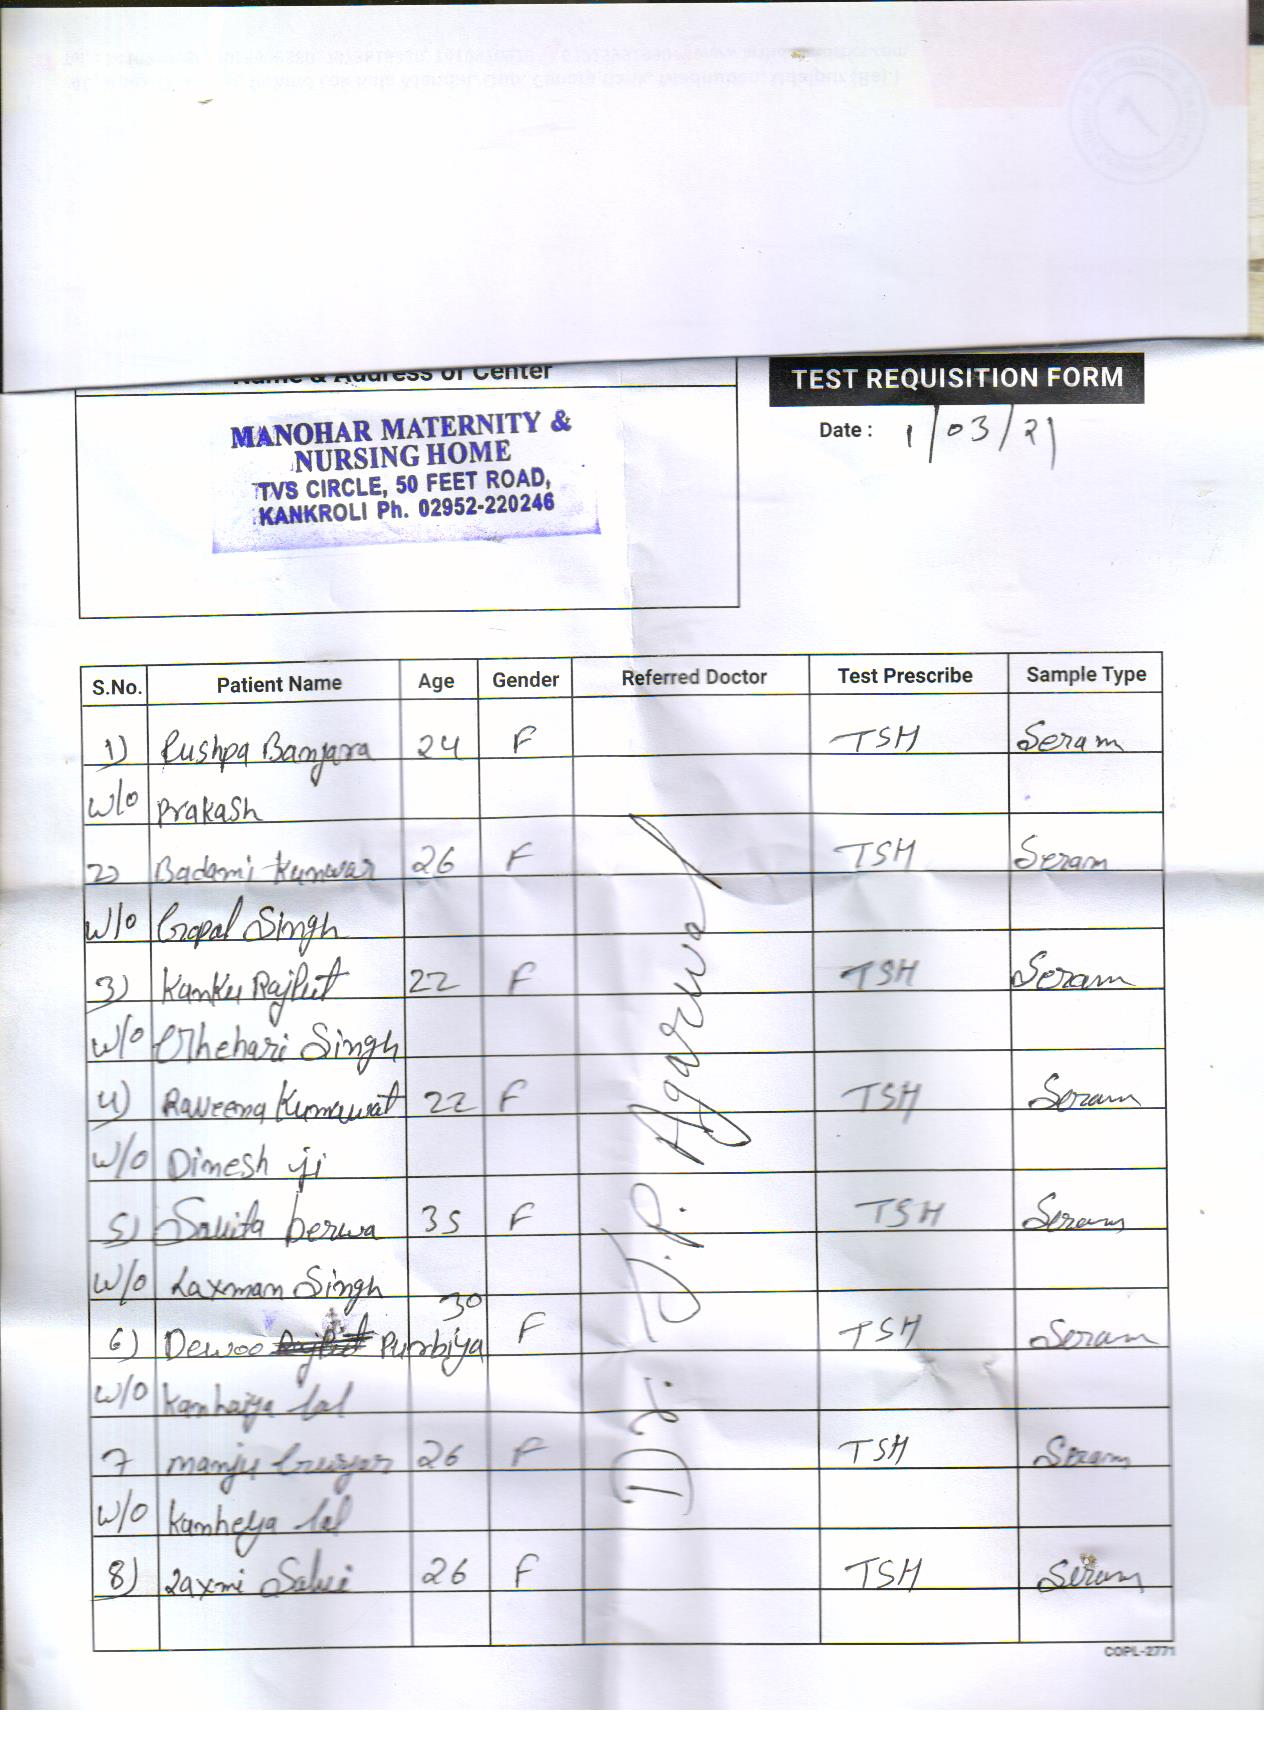 Name & Address of Center
TEST REQUISITION FORM
MANOHAR MATERNITY &
NURSING HOME
TVS CIRCLE, 50 FEET ROAD,
KANKROLI Ph. 02952-220246
Date : 1/03/21
S.No. Patient Name Age Gender Referred Doctor Test Prescribe Sample Type
1) Pushpa Banjara 24 F TSH Seram
w/o Prakash
2) Badami Kunwar 26 F TSH Seram
w/o Gopal Singh
3) Kanku Rajput 22 F TSH Seram
w/o Singh
4) Raveena Kumawat 22 F TSH Seram
w/o Dimesh ji
5) Savita berwa 35 F TSH Seram
w/o Laxman Singh
6) Dewoo Purbiya 30 F TSH Seram
w/o Kanhaiya lal
7 manju 26 F TSH Seram
w/o Kanheya lal
8) Laxmi Salvi 26 F TSH Seram
Dr. J.P. Agarwal
COPL-2771